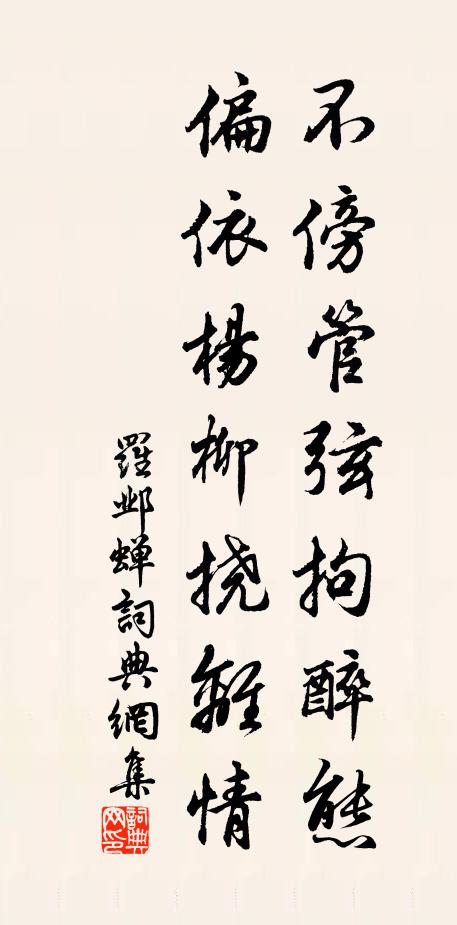 不傍管弦拘醉態
偏依楊柳挠離情
羅邺蝉詞典網集
詞典网印